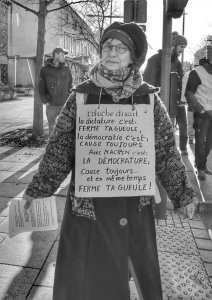 coluche disait
la dictature c'est:
FERME TA GUEULE,
la démocratie c'est:
CAUSE TOUJOURS
Avec MACRON c'est:
LA DÉMOCRATURE
Cause toujours...
et en même temps
FERME TA GUEULE!